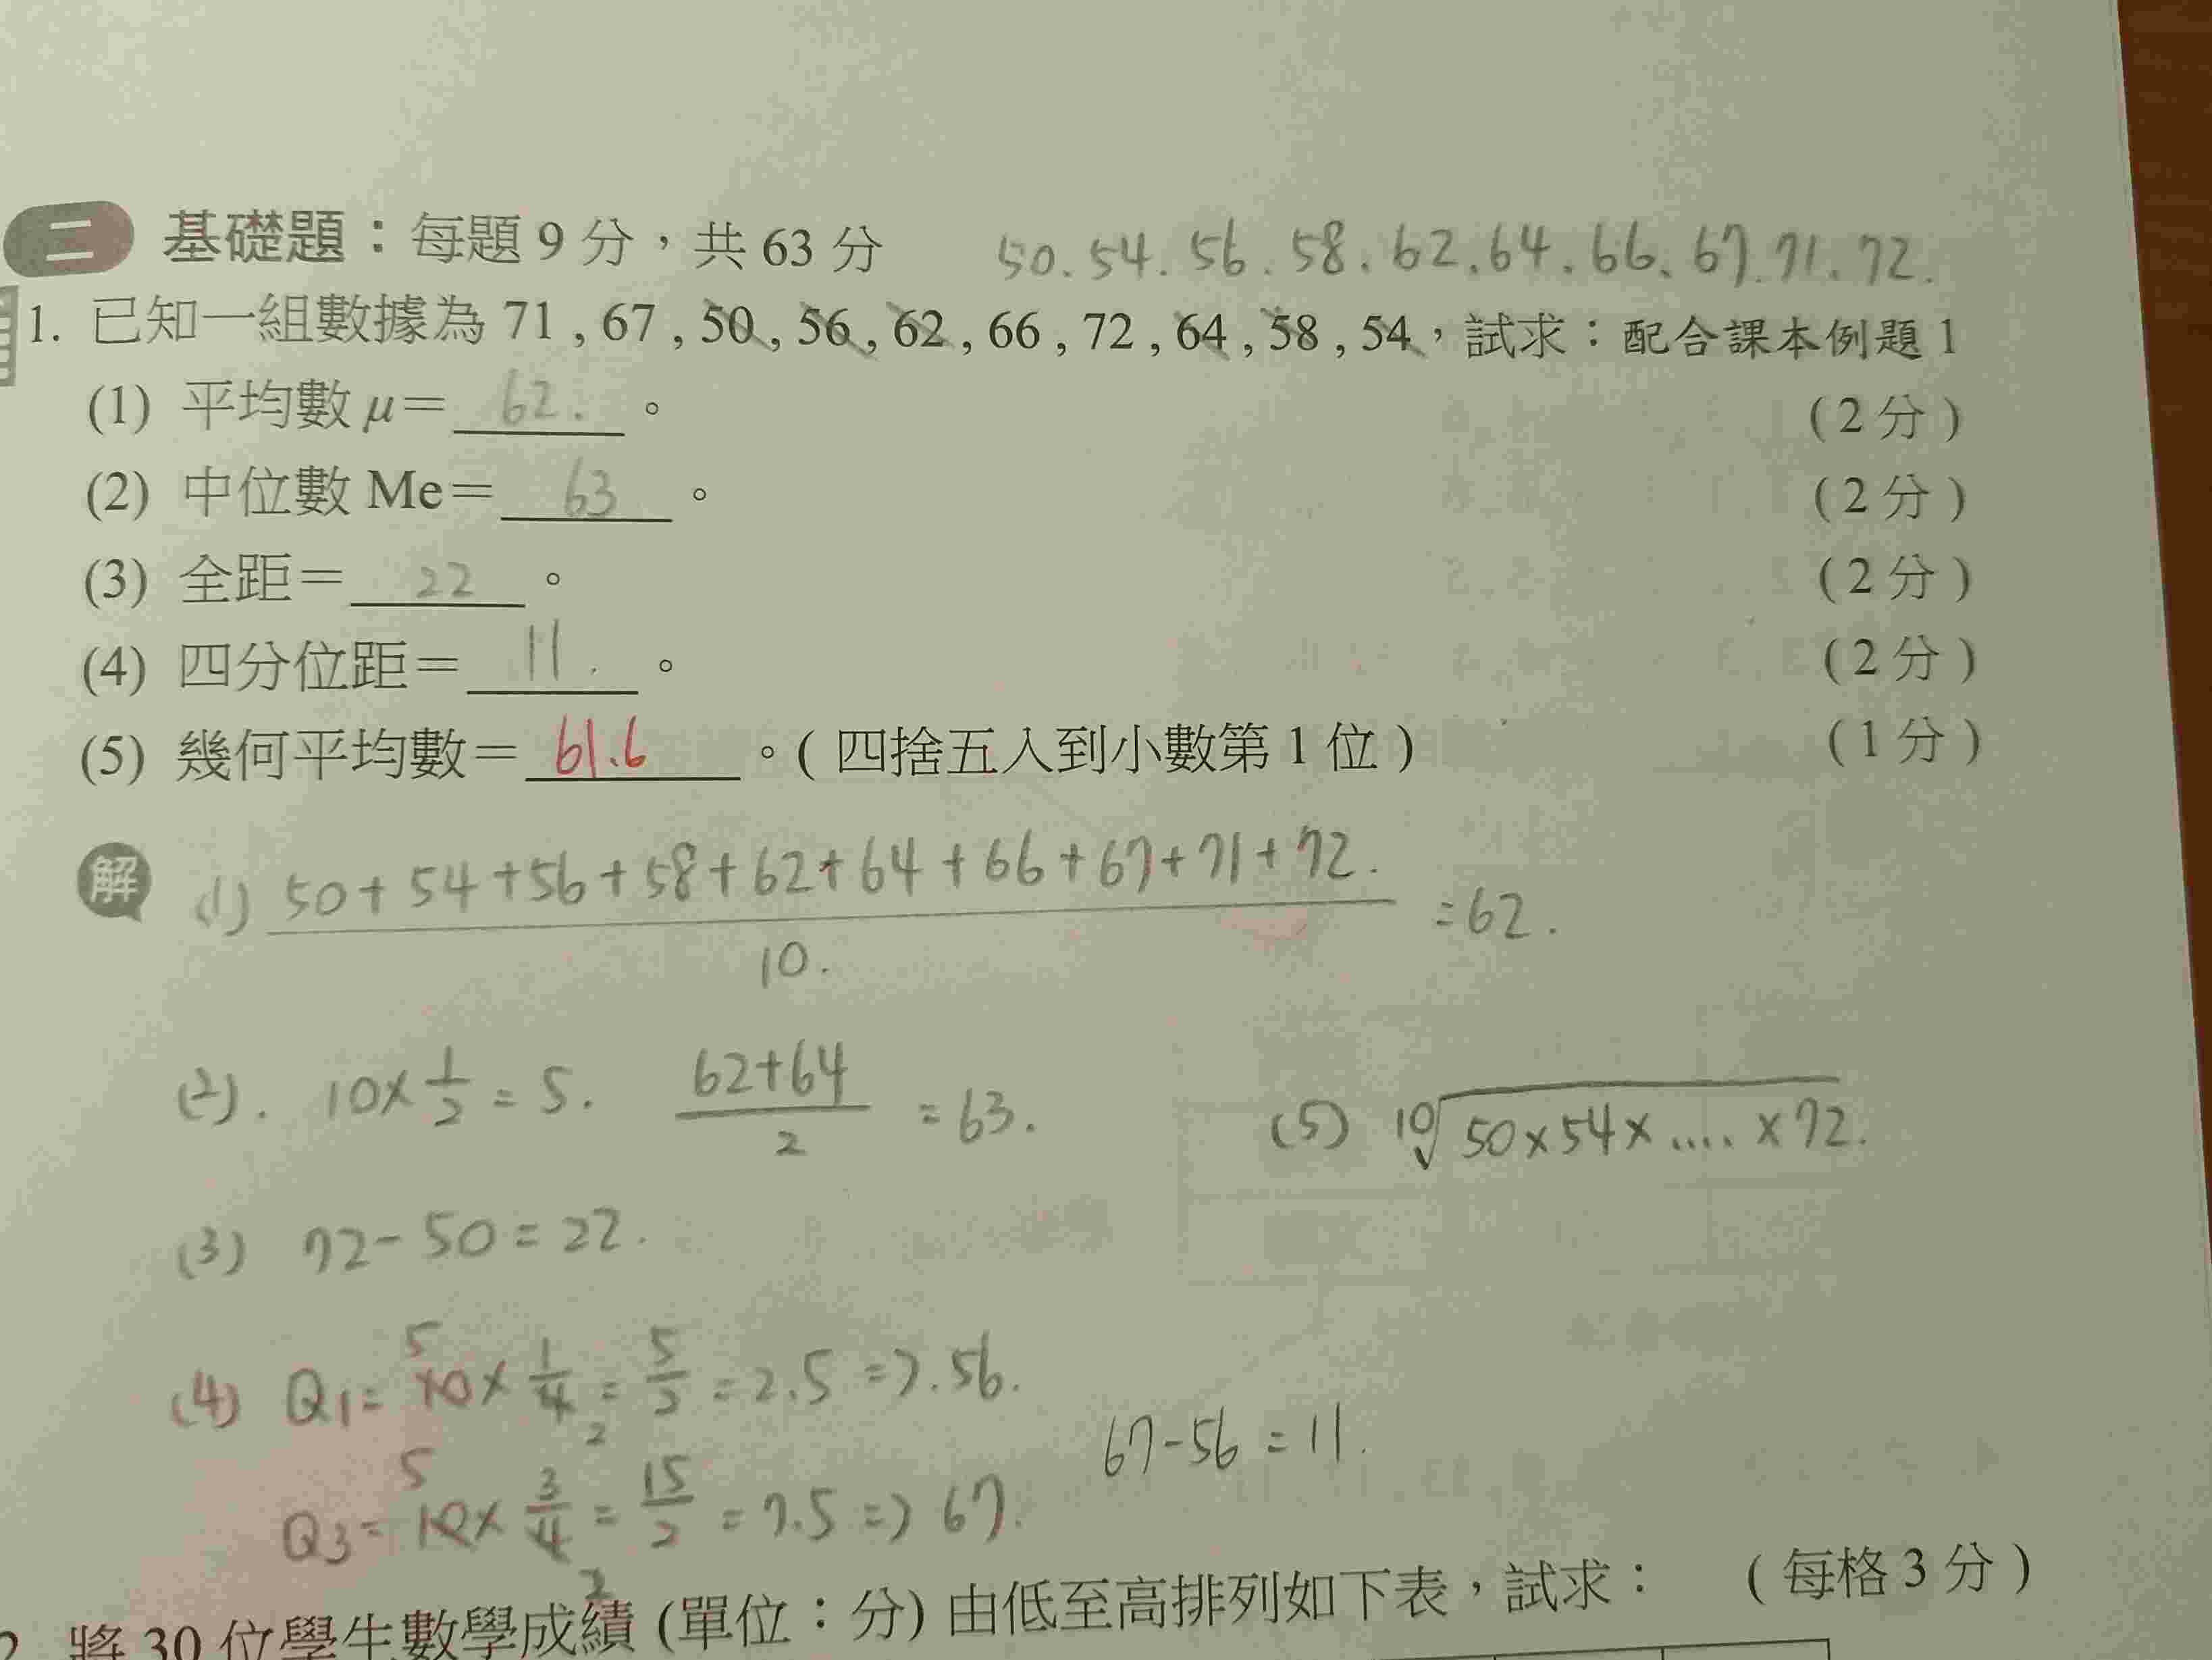 二 基礎題：每題 9 分，共 63 分
50、54、56、58、62、64、66、67、71、72.
1. 已知一組數據為 71 , 67 , 50 , 56 , 62 , 66 , 72 , 64 , 58 , 54，試求：配合課本例題 1
(1) 平均數 μ＝ 62. 。 ( 2 分 )
(2) 中位數 Me＝ 63 。 ( 2 分 )
(3) 全距＝ 22 。 ( 2 分 )
(4) 四分位距＝ 11. 。 ( 2 分 )
(5) 幾何平均數＝ 61.6 。( 四捨五入到小數第 1 位 ) ( 1 分 )
解 (1) 50+54+56+58+62+64+66+67+71+72.
10. =62.
(2). 10×1/2=5. 62+64/2 =63.
(5) ¹⁰√50×54×....×72.
(3) 72-50=22.
(4) Q1= 10×1/4=5/2=2.5=>.56.
5 2
67-56=11.
Q3= 10×3/4=15/2=7.5=>67.
5 2
2. 將 30 位學生數學成績 (單位：分) 由低至高排列如下表，試求： ( 每格 3 分 )